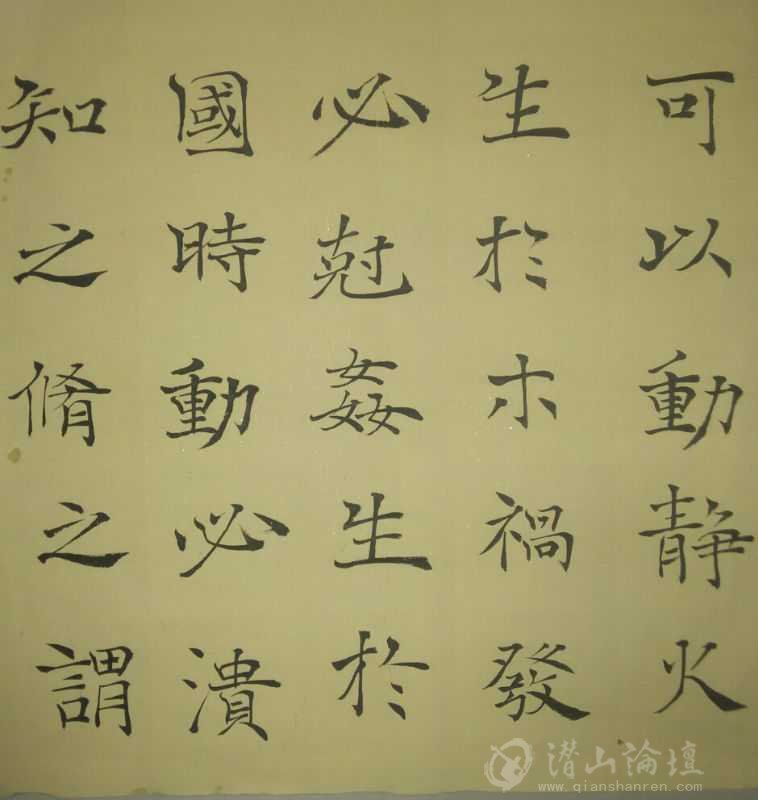 可以動静火
生於木禍發
必尅姦生於
國時動必潰
知之脩之謂
潜山論壇
www.qianshanren.com